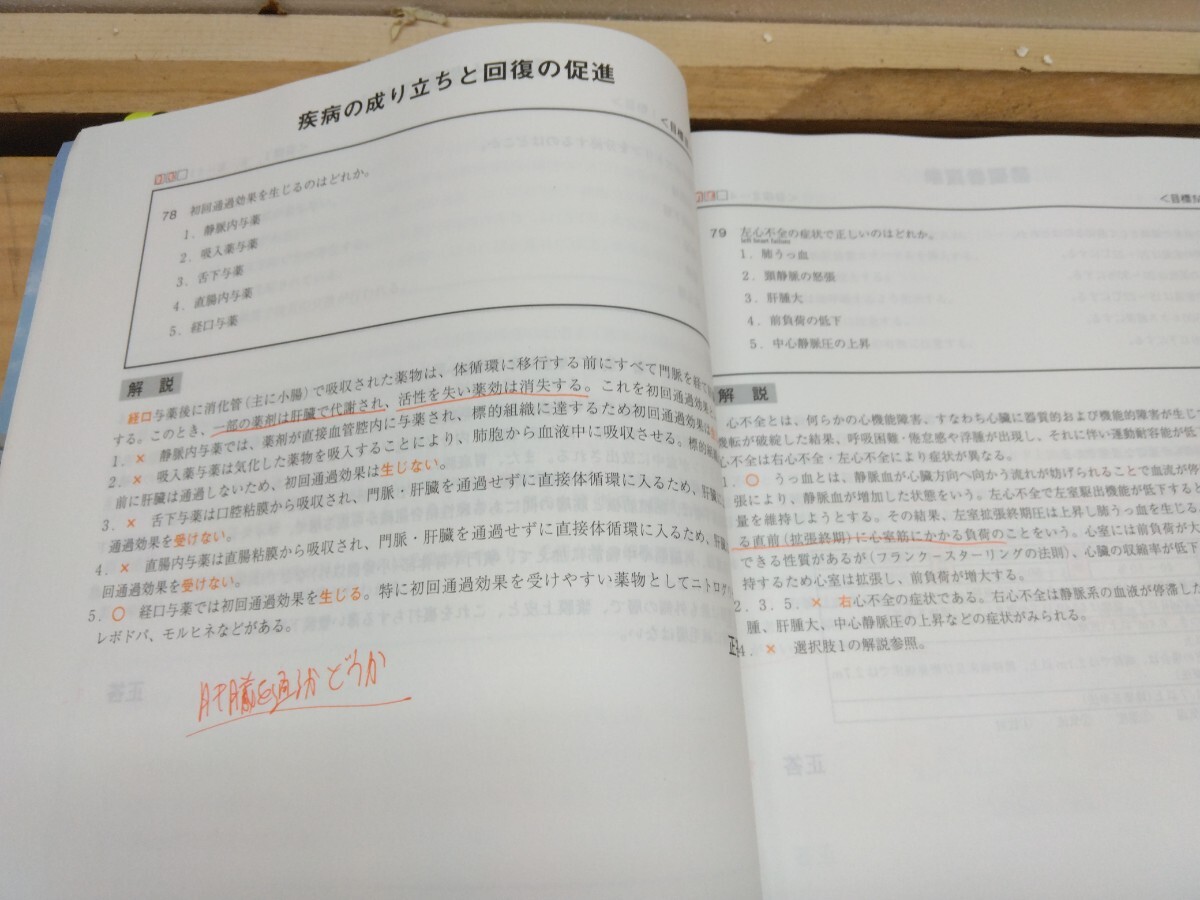 疾病の成り立ちと回復の促進
<目標
78 初回通過効果を生じるのはどれか。
1. 静脈内与薬
2. 吸入薬与薬
3. 舌下与薬
4. 直腸内与薬
5. 経口与薬
解説
経口与薬後に消化管(主に小腸)で吸収された薬物は、体循環に移行する前にすべて門脈を経て
する。このとき、一部の薬剤は肝臓で代謝され、活性を失い薬効は消失する。これを初回通過効果と
1. × 静脈内与薬では、薬剤が直接血管腔内に与薬され、標的組織に達するため初回通過効果は
2. × 吸入薬与薬は気化した薬物を吸入することにより、肺胞から血液中に吸収させる。標的組織
前に肝臓は通過しないため、初回通過効果は生じない。
3. × 舌下与薬は口腔粘膜から吸収され、門脈・肝臓を通過せずに直接体循環に入るため、肝臓
通過効果を受けない。
4. × 直腸内与薬は直腸粘膜から吸収され、門脈・肝臓を通過せずに直接体循環に入るため、肝臓
回通過効果を受けない。
5. ○ 経口与薬では初回通過効果を生じる。特に初回通過効果を受けやすい薬物としてニトログ
レボドパ、モルヒネなどがある。
肝臓を通るかどうか
<目標
79 左心不全の症状で正しいのはどれか。
left heart failure
1. 肺うっ血
2. 頸静脈の怒張
3. 肝腫大
4. 前負荷の低下
5. 中心静脈圧の上昇
解説
心不全とは、何らかの心機能障害、すなわち心臓に器質的および機能的障害が生じ
機転が破綻した結果、呼吸困難・倦怠感や浮腫が出現し、それに伴い運動耐容能が低下
心不全は右心不全・左心不全により症状が異なる。
1. ○ うっ血とは、静脈血が心臓方向へ向かう流れが妨げられることで血流が停
張により、静脈血が増加した状態をいう。左心不全で左室駆出機能が低下すると
量を維持しようとする。その結果、左室拡張終期圧は上昇し肺うっ血を生じる
る直前(拡張終期)に心室筋にかかる負荷のことをいう。心室には前負荷が大
できる性質があるが(フランク−スターリングの法則)、心臓の収縮率が低下
持するため心室は拡張し、前負荷が増大する。
2. 3. 5. × 右心不全の症状である。右心不全は静脈系の血液が停滞した
腫、肝腫大、中心静脈圧の上昇などの症状がみられる。
4. × 選択肢1の解説参照。
正